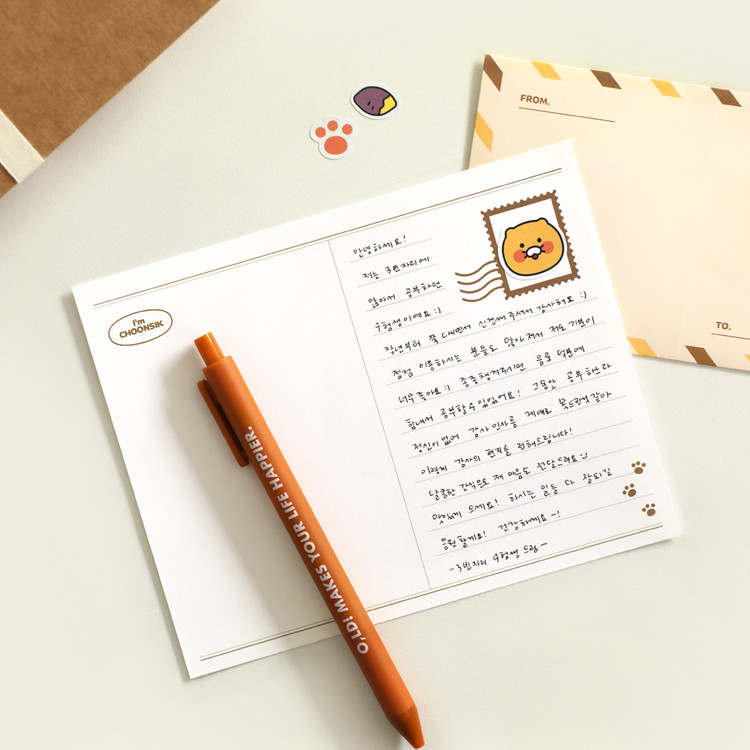 FROM.
I'm
CHOONSIK
안녕하세요!
저는 3번자리에
앉아서 공부하던
수험생이에요:)
작년부터 쭉 다니면서 신경써주셔서 감사해요:)
점점 이용하시는 분들도 많아져서 저도 기분이
너무 좋아요:) 종종 챙겨주시던 음료 덕분에
힘내서 공부할 수 있었어요! 그동안 공부하느라
정신이 없어 감사인사를 제대로 못드린거 같아
이렇게 감사의 편지를 전해드립니다!
달콤한 간식으로 제 마음도 전달드려요
맛있게 드세요! 하시는 일들 다 잘되길
응원할게요! 건강하세요~!
-3번자리 수험생 드림-
TO.
O,LD! MAKES YOUR LIFE HAPPIER.